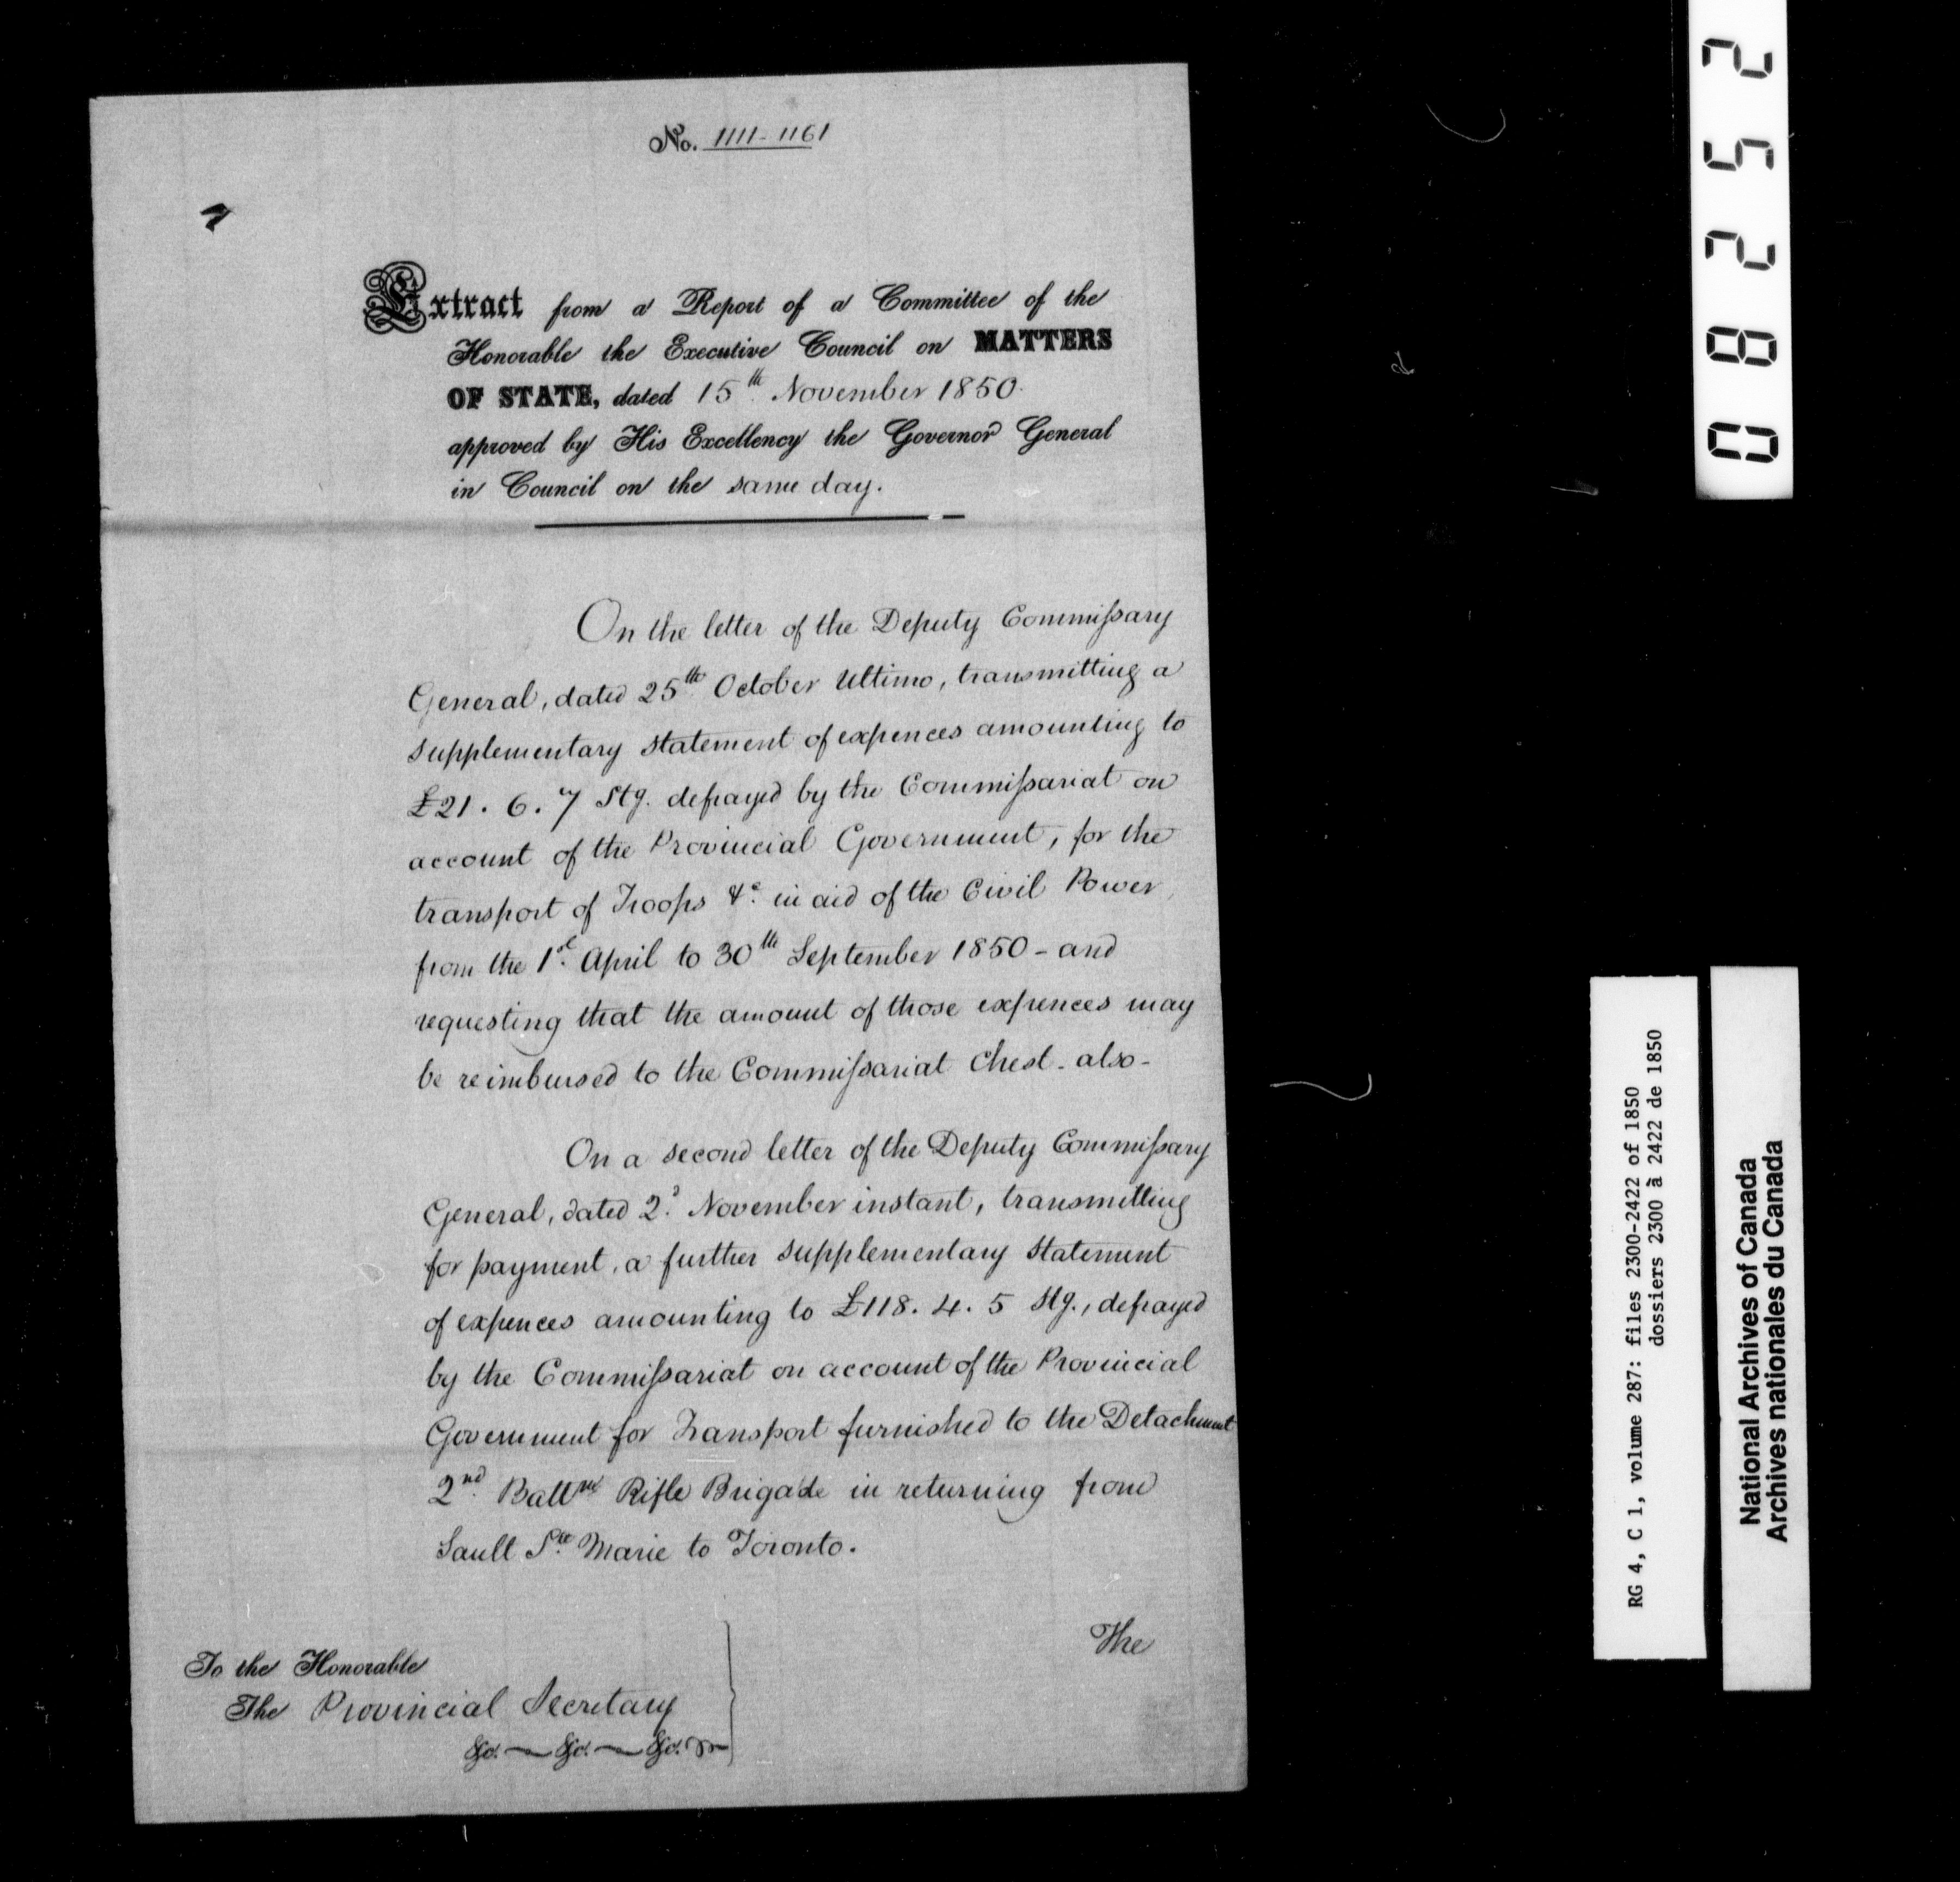 No. 1111-1161
Extract from a Report of a Committee of the
Honorable the Executive Council on MATTERS
OF STATE, dated 15th November 1850.
approved by His Excellency the Governor General
in Council on the same day.
On the letter of the Deputy Commissary
General, dated 25th October Ultimo, transmitting a
supplementary statement of expences amounting to
£21. 6. 7 Stg. defrayed by the Commissariat on
account of the Provincial Government, for the
transport of Troops &c. in aid of the Civil Power,
from the 1st April to 30th September 1850 - and
requesting that the amount of those expences may
be reimbursed to the Commissariat Chest - also -
On a second letter of the Deputy Commissary
General, dated 2d. November instant, transmitting
for payment, a further supplementary statement
of expences amounting to £118. 4. 5 Stg., defrayed
by the Commissariat on account of the Provincial
Government for Transport furnished to the Detachment
2nd. Battn Rifle Brigade in returning from
Sault Ste Marie to Toronto.
The
To the Honorable
The Provincial Secretary
&c. &c. &c.
08252
RG 4, C 1, volume 287: files 2300-2422 of 1850
dossiers 2300 à 2422 de 1850
National Archives of Canada
Archives nationales du Canada